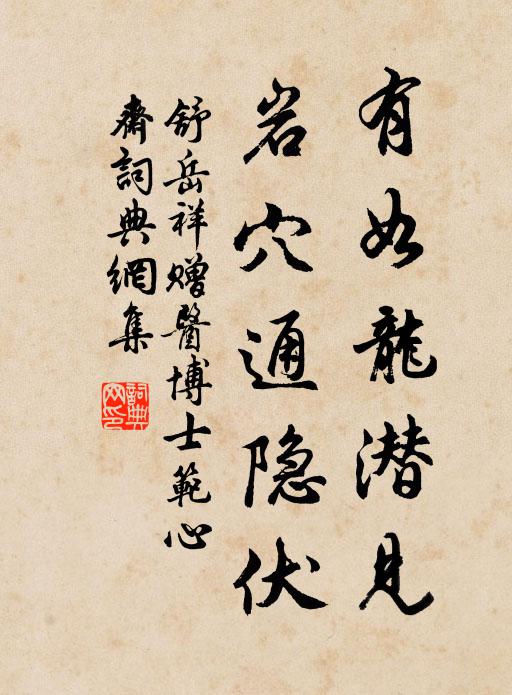 有如龍潜見
岩穴通隐伏
舒岳祥赠醫博士範心
齋詞典網集
詞典
网印